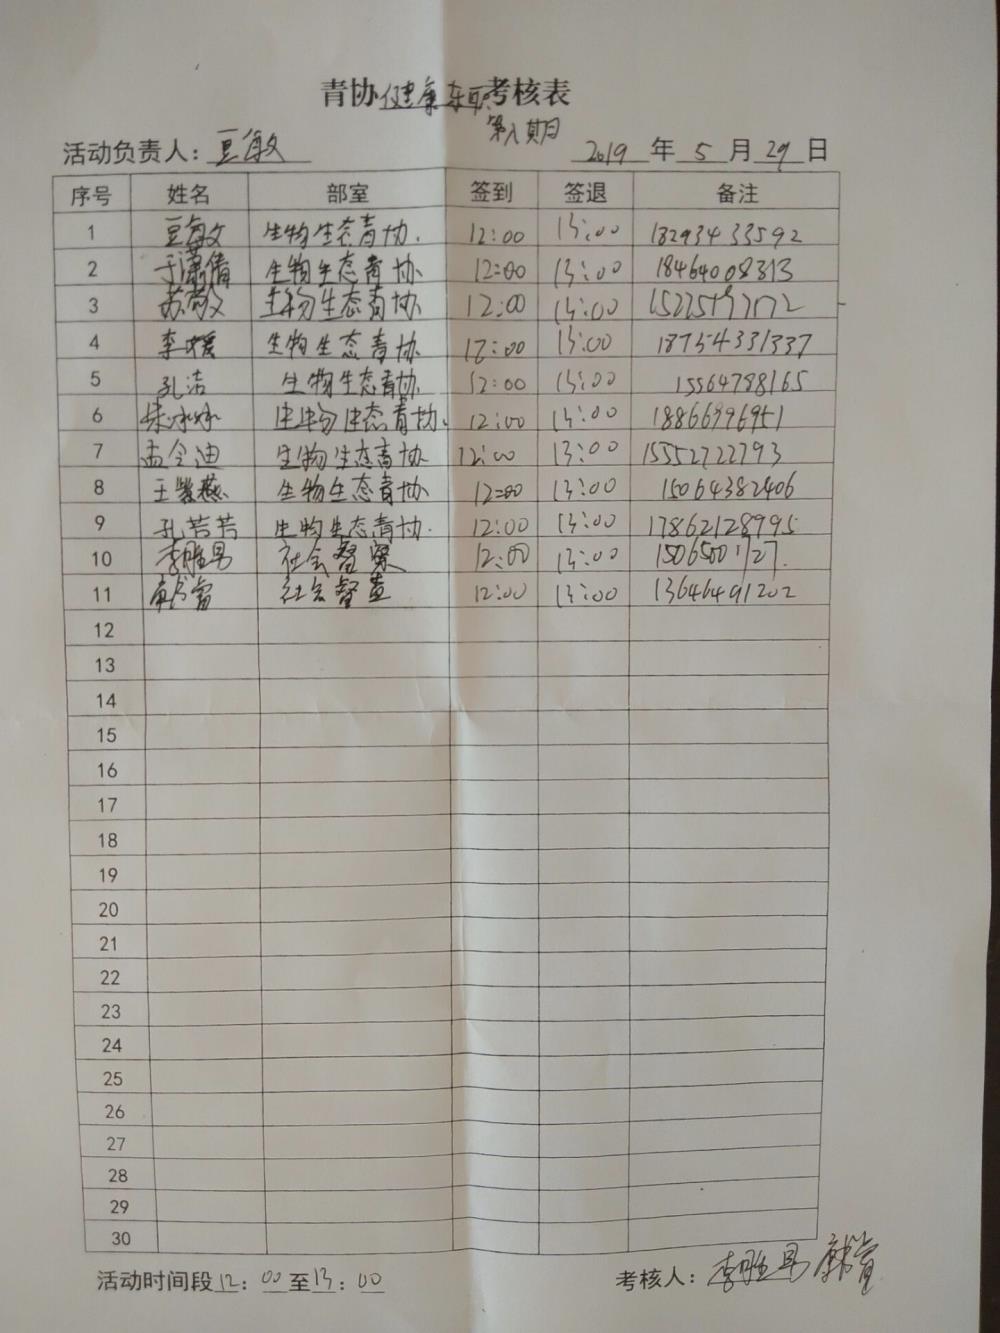 青协健康东职考核表
第八期
活动负责人：豆敏 2019 年 5 月 29 日
序号 姓名 部室 签到 签退 备注
1 豆敏 生物生态青协. 12:00 13:00 18293433592
2 于潇倩 生物生态青协. 12:00 13:00 18464008313
3 苏敬文 生物生态青协 12:00 13:00
4 李媛 生物生态青协 12:00 13:00 18754331337
5 孔洁 生物生态青协 12:00 13:00 15564788165
6 朱冰冰 生物生态青协. 12:00 13:00 18866996951
7 孟令迪 生物生态青协 12:00 13:00 15552722793
8 王紫燕 生物生态青协. 12:00 13:00 15064382406
9 孔若芳 生物生态青协. 12:00 13:00 17862128995
10 李胜男 社会督察 12:00 13:00
11 社会督查 12:00 13:00 13646491202
12
13
14
15
16
17
18
19
20
21
22
23
24
25
26
27
28
29
30
活动时间段12：00至13：00 考核人：李胜男